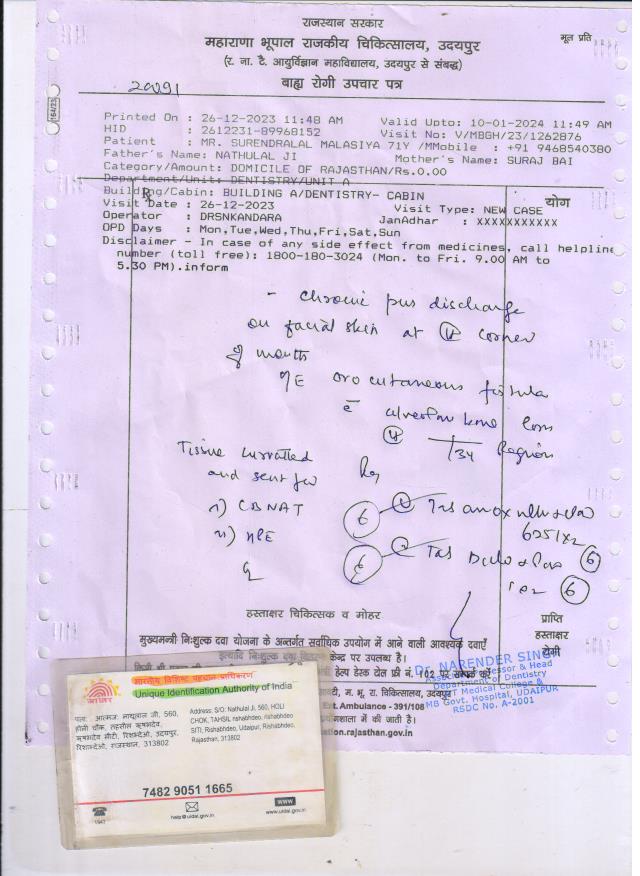 राजस्थान सरकार
महाराणा भूपाल राजकीय चिकित्सालय, उदयपुर
मूल प्रति
(र. ना. टै. आयुर्विज्ञान महाविद्यालय, उदयपुर से संबद्ध)
बाह्य रोगी उपचार पत्र
20091
164/23
Printed On : 26-12-2023 11:48 AM Valid Upto: 10-01-2024 11:49 AM
HID : 2612231-89968152 Visit No: V/MBGH/23/1262876
Patient : MR. SURENDRALAL MALASIYA 71Y /MMobile : +91 9468540380
Father's Name: NATHULAL JI Mother's Name: SURAJ BAI
Category/Amount: DOMICILE OF RAJASTHAN/Rs.0.00
Department/Unit: DENTISTRY/UNIT A
Building/Cabin: BUILDING A/DENTISTRY- CABIN
योग
Visit Date : 26-12-2023 Visit Type: NEW CASE
Operator : DRSNKANDARA JanAdhar : XXXXXXXXXXX
OPD Days : Mon,Tue,Wed,Thu,Fri,Sat,Sun
Disclaimer - In case of any side effect from medicines, call helpline
number (toll free): 1800-180-3024 (Mon. to Fri. 9.00 AM to
5.30 PM).inform
- chronic pus discharge
on facial skin at corner
of mouth
O/E oro cutaneous fistula
c̄ alveolar bone loss
34 Region
Tissue curratted
and sent for
Rx
1) CBNAT
① Tab amox
625 1x2
6
11) HPE
② Tab
6
6
हस्ताक्षर चिकित्सक व मोहर
प्राप्ति
हस्ताक्षर
रोगी
मुख्यमन्त्री निःशुल्क दवा योजना के अन्तर्गत सर्वाधिक उपयोग में आने वाली आवश्यक दवाएँ
इत्यादि निःशुल्क दवा वितरण केन्द्र पर उपलब्ध है।
हेल्प डेस्क टोल फ्री नं. 102 पर सम्पर्क करें
Dr. NARENDER SINGH
Professor & Head
Department of Dentistry
RNT Medical College &
MB Govt. Hospital, UDAIPUR
RSDC No. A-2001
म. भू. रा. चिकित्सालय, उदयपुर
Ext. Ambulance - 391/108
में की जाती है।
tion.rajasthan.gov.in
भारतीय विशिष्ट पहचान प्राधिकरण
Unique Identification Authority of India
आधार
पता: आत्मज: नाथुलाल जी, 560,
होली चौक, तहसील ऋषभदेव,
ऋषभदेव सीटी, रिशभदेओ, उदयपुर,
रिशभदेओ, राजस्थान, 313802
Address: S/O: Nathulal Ji, 560, HOLI
CHOK, TAHSIL rishabhdeo, rishabhdeo
SITI, Rishabhdeo, Udaipur, Rishabhdeo,
Rajasthan, 313802
7482 9051 1665
1947
help@uidai.gov.in
www
www.uidai.gov.in